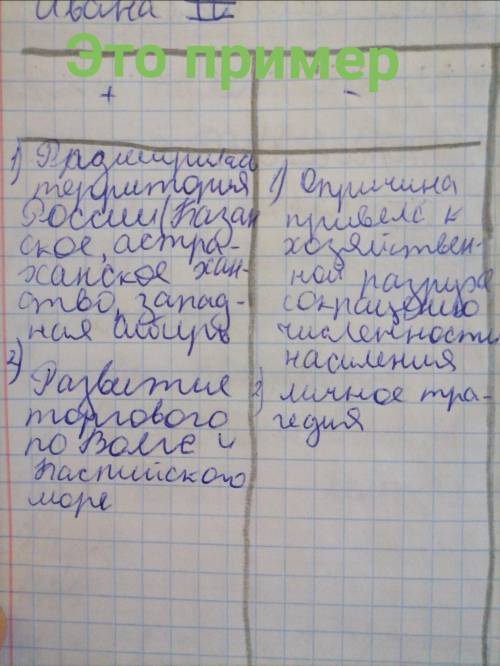 Ивана IV
Это пример
+
-
1) Расширилась
территория
России (Казан
ское, астра-
ханское хан-
ство, запад-
ная Сибирь
2)
Развитие
торгового
по Волге и
Каспийского
море
1) Опричина
привела к
хозяйствен-
ной разрухе
сокращению
численности
населения
2) личное тра-
гедия